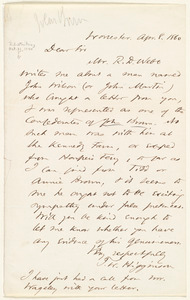 John Brown
Worcester Apr. 8, 1860
Dear Sir
Mr. R. D. Webb
writes me about a man named
John Wilson (or John Martin)
who brought a letter from you,
& now represents one of the
Confederates of John Brown. No
such man was with him at
the Kennedy Farm, or escaped
from Harpers Ferry, so far as
I can find from Tidd or
Annie Brown, & it seems to
me he ought not to be exciting
sympathy under false pretences.
Will you be kind enough to
let me know whether you have
any evidence of his genuineness.
Very respectfully
T. W. Higginson
I have just had a call from
with your letter.